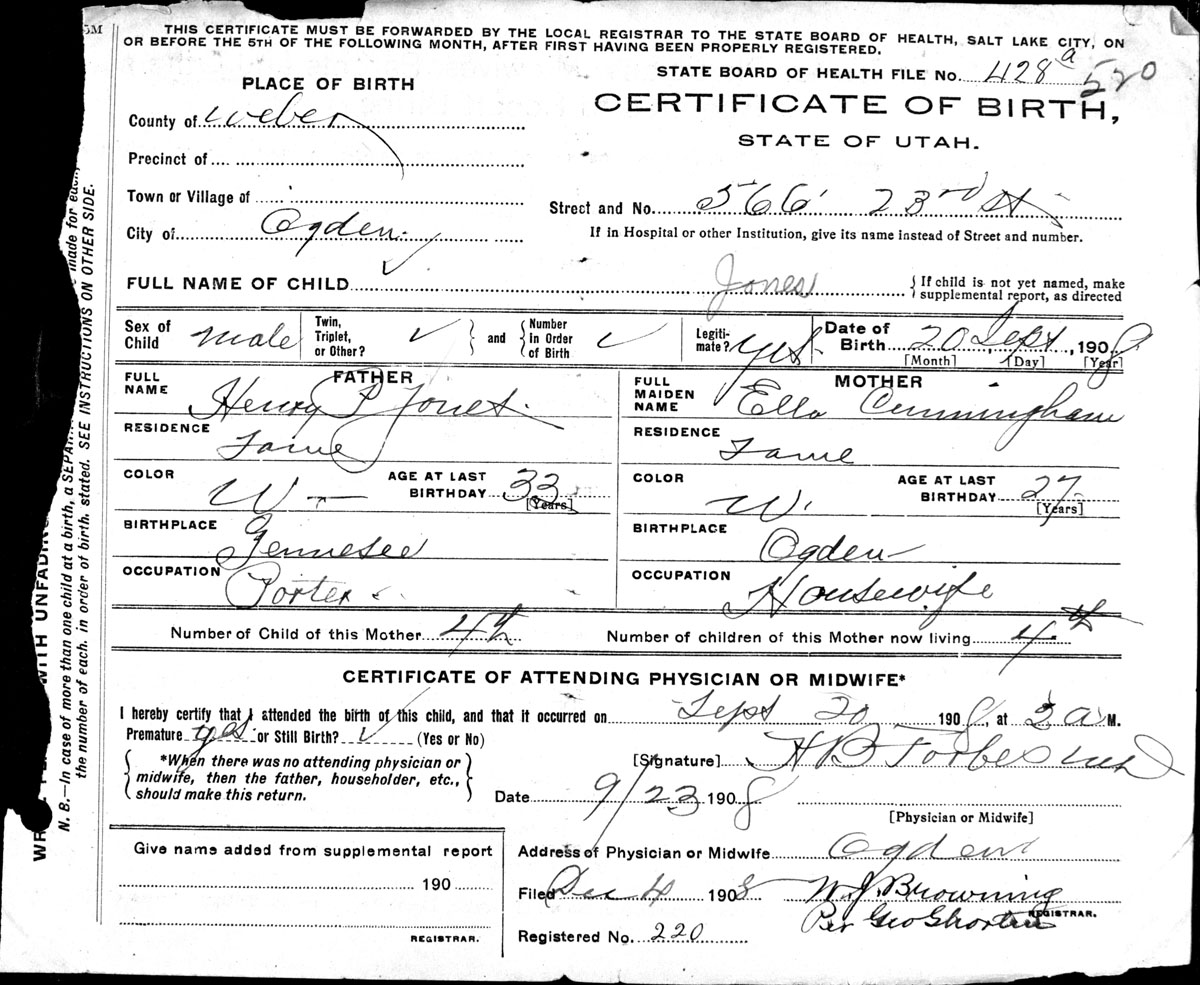 5M
THIS CERTIFICATE MUST BE FORWARDED BY THE LOCAL REGISTRAR TO THE STATE BOARD OF HEALTH, SALT LAKE CITY, ON
OR BEFORE THE 5TH OF THE FOLLOWING MONTH, AFTER FIRST HAVING BEEN PROPERLY REGISTERED.
STATE BOARD OF HEALTH FILE No. 428 a 520
PLACE OF BIRTH
CERTIFICATE OF BIRTH,
STATE OF UTAH.
County of Weber
Precinct of
Town or Village of
Street and No. 566 23rd St
City of Ogden
If in Hospital or other Institution, give its name instead of Street and number.
FULL NAME OF CHILD Jones
If child is not yet named, make
supplemental report, as directed
Sex of Child male
Twin, Triplet, or Other? ✓
and
Number in Order of Birth ✓
Legitimate? yes
Date of Birth 20 Sept, 1908
[Month] [Day] [Year]
FATHER
FULL NAME Henry P Jones
RESIDENCE Same
COLOR W
AGE AT LAST BIRTHDAY 33
[Years]
BIRTHPLACE Tennesee
OCCUPATION Porter
MOTHER
FULL MAIDEN NAME Ella Cunningham
RESIDENCE Same
COLOR W.
AGE AT LAST BIRTHDAY 27
[Years]
BIRTHPLACE Ogden
OCCUPATION Housewife
Number of Child of this Mother 4th
Number of children of this Mother now living 4th
CERTIFICATE OF ATTENDING PHYSICIAN OR MIDWIFE*
I hereby certify that I attended the birth of this child, and that it occurred on Sept 20 1908, at 3 a M.
Premature yes or Still Birth? ✓ (Yes or No)
*When there was no attending physician or
midwife, then the father, householder, etc.,
should make this return.
[Signature] H B Forbes MD
Date 9/23 1908
[Physician or Midwife]
Give name added from supplemental report
190
REGISTRAR.
Address of Physician or Midwife Ogden
Filed Dec 4 1908 W. J. Browning
Per Geo
REGISTRAR.
Registered No. 220
N. B.—In case of more than one child at a birth, a made for each,
the number of each, in order of birth, stated. SEE INSTRUCTIONS ON OTHER SIDE.
WITH